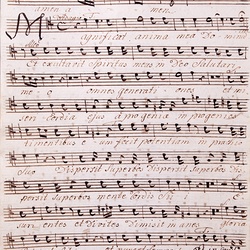 amen a men.
Magnificat anima mea Domino
Et exultavit spiritus meus in Deo Salutari
me o omnes generationes et mi
seri cordia ejus a progenie in progenies
timentibus e um fecit potentiam in brachio
Suo Dispersit Superbos Dispersit Superbos Dis
persit Superbos mente cordis Su
rientes et Divites Dimisit inanes